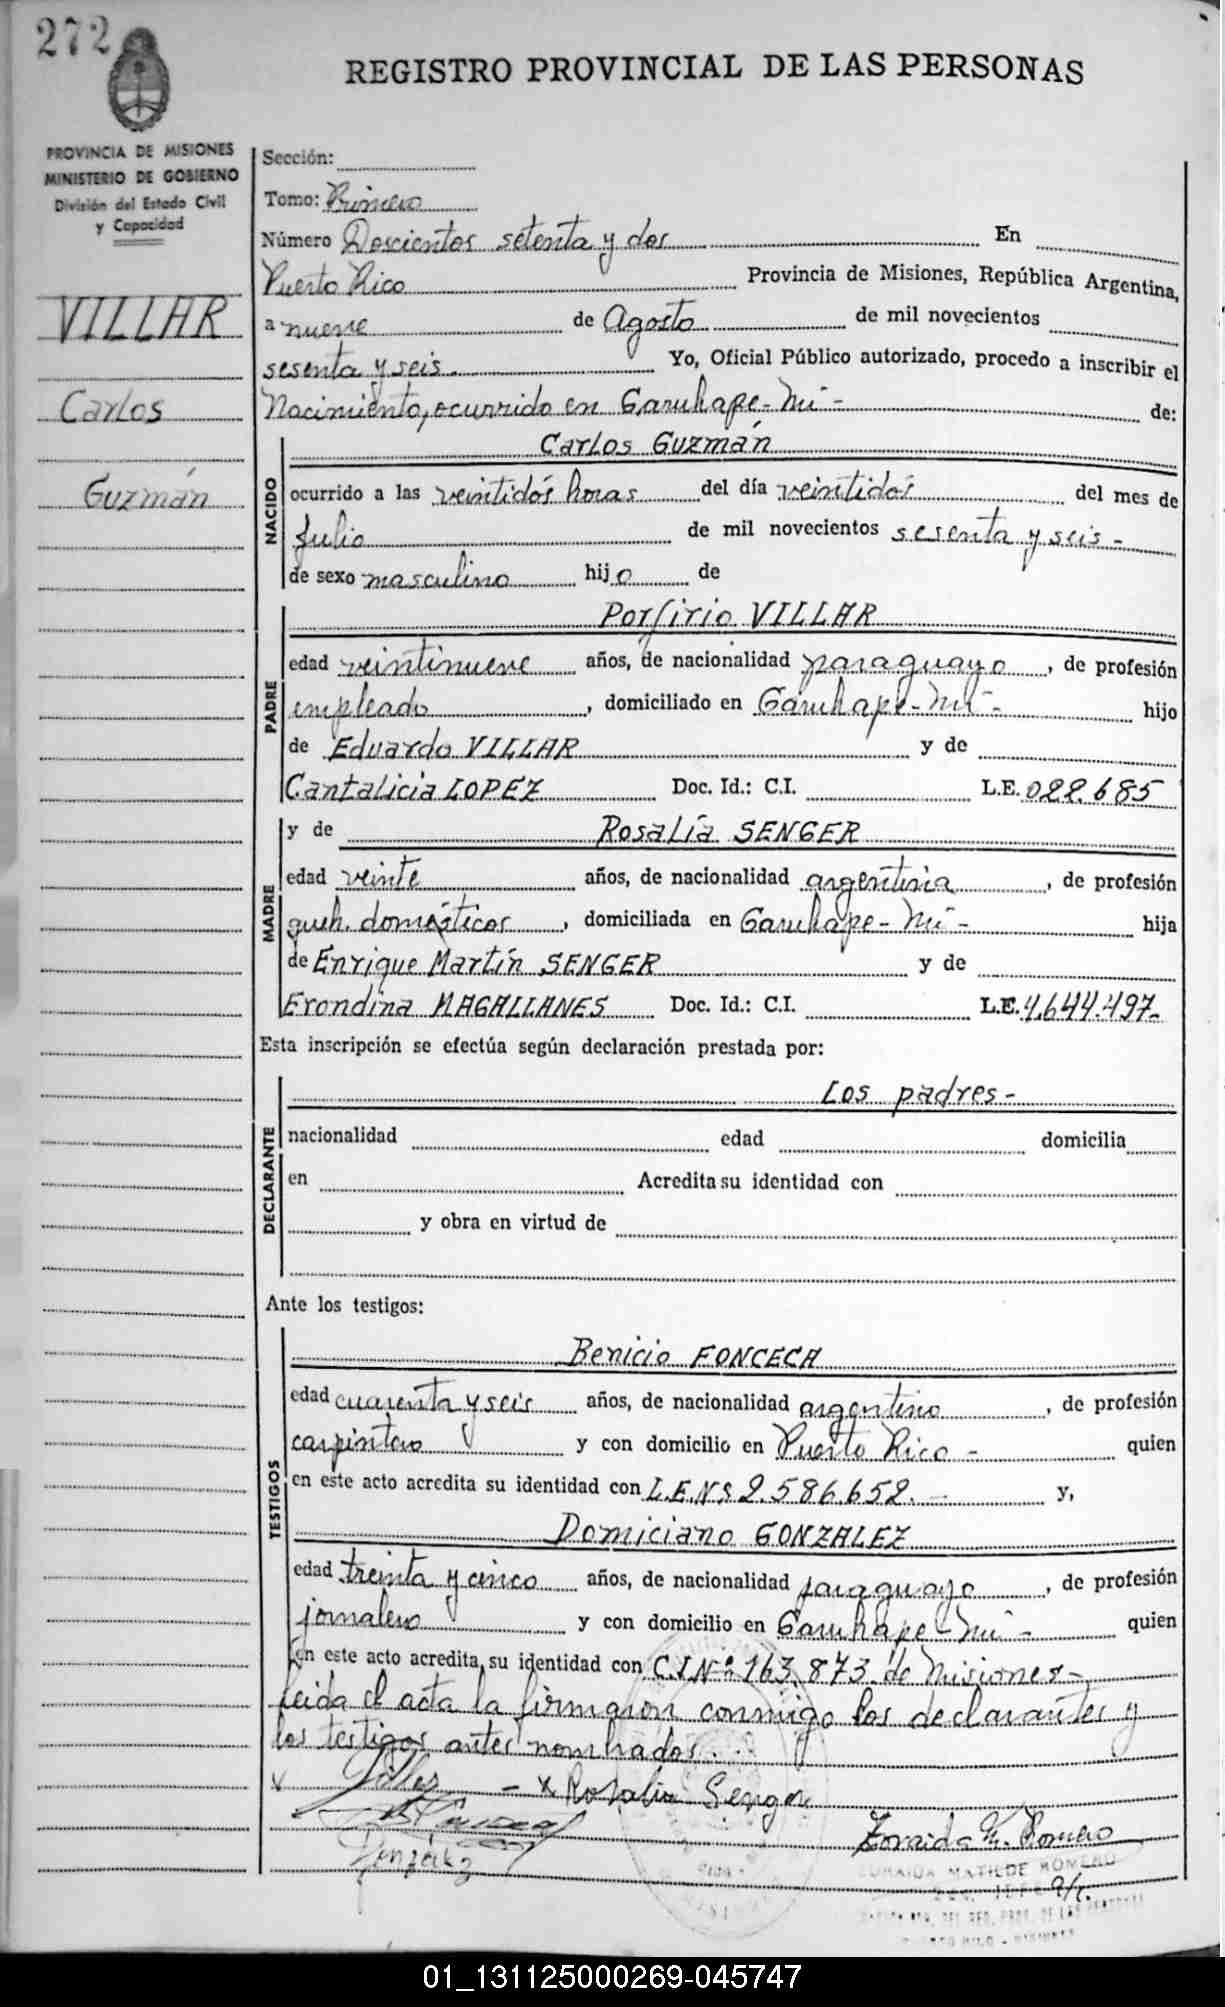 272
REGISTRO PROVINCIAL DE LAS PERSONAS
PROVINCIA DE MISIONES
MINISTERIO DE GOBIERNO
División del Estado Civil
y Capacidad
VILLAR
Carlos
Guzmán
Sección:
Tomo: Primero
Número Doscientos setenta y dos En
Puerto Rico Provincia de Misiones, República Argentina,
a nueve de Agosto de mil novecientos
sesenta y seis. Yo, Oficial Público autorizado, procedo a inscribir el
Nacimiento, ocurrido en Garuhape-Mi - de:
NACIDO
Carlos Guzmán
ocurrido a las veintidós horas del día veintidós del mes de
Julio de mil novecientos sesenta y seis -
de sexo masculino hijo de
PADRE
Porfirio VILLAR
edad veintinueve años, de nacionalidad paraguayo, de profesión
empleado, domiciliado en Garuhape-Mi - hijo
de Eduardo VILLAR y de
Cantalicia LOPEZ Doc. Id.: C.I. L.E. 022.685
MADRE
y de Rosalía SENGER
edad veinte años, de nacionalidad argentina, de profesión
queh. domésticos, domiciliada en Garuhape-Mi - hija
de Enrique Martín SENGER y de
Erondina MAGALLANES Doc. Id.: C.I. L.E. 4.644.497-
Esta inscripción se efectúa según declaración prestada por:
DECLARANTE
Los padres-
nacionalidad edad domicilia
en Acredita su identidad con
y obra en virtud de
Ante los testigos:
TESTIGOS
Benicio FONCECA
edad cuarenta y seis años, de nacionalidad argentino, de profesión
carpintero y con domicilio en Puerto Rico - quien
en este acto acredita su identidad con L.E.Nº 2.586.652.- y,
Domiciano GONZALEZ
edad treinta y cinco años, de nacionalidad paraguayo, de profesión
jornalero y con domicilio en Garuhape-Mi - quien
en este acto acredita su identidad con C.I.Nº 163.873 de Misiones-
Leida el acta la firmaron conmigo los declarantes y
los testigos antes nombrados.
Villar - x Rosalia Senger
Zoraida M. Romero
Gonzalez
ZORAIDA MATILDE ROMERO
01_131125000269-045747